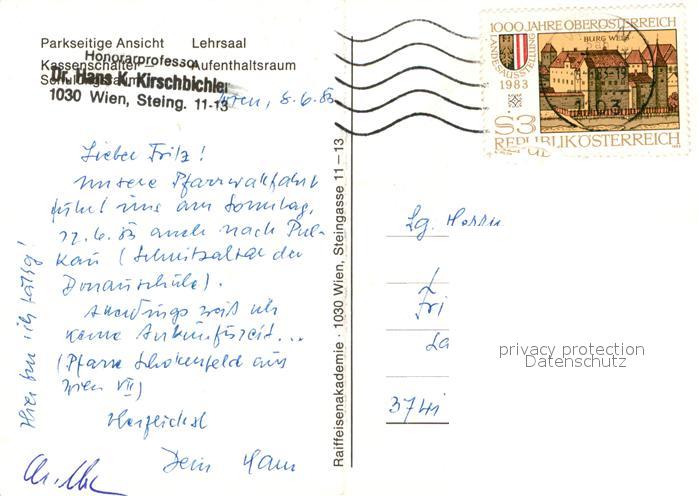 Parkseitige Ansicht    Lehrsaal
Honorarprofessor
Kassenschalter    Aufenthaltsraum
Dr. Hans K. Kirschbichler
1030 Wien, Steing. 11-13
Wien, 8.6.83
Lieber Fritz!
Unsere Pfarrwallfahrt
führt uns am Sonntag,
12.6.83 auch nach Pul-
kau (Schnitzaltar der
Donauschule).
Allerdings weiß ich
keine Ankunftszeit...
(Pfarre Schottenfeld aus
Wien VII)
Herzlichst
Dein Hans
Hier bin ich tätig!
Raiffeisenakademie · 1030 Wien, Steingasse 11–13
1000 JAHRE OBERÖSTERREICH
LANDESAUSSTELLUNG
1983
BURG WELS
S3
REPUBLIK ÖSTERREICH
1103
Lg. Herrn
Fri
La
3741
privacy protection
Datenschutz